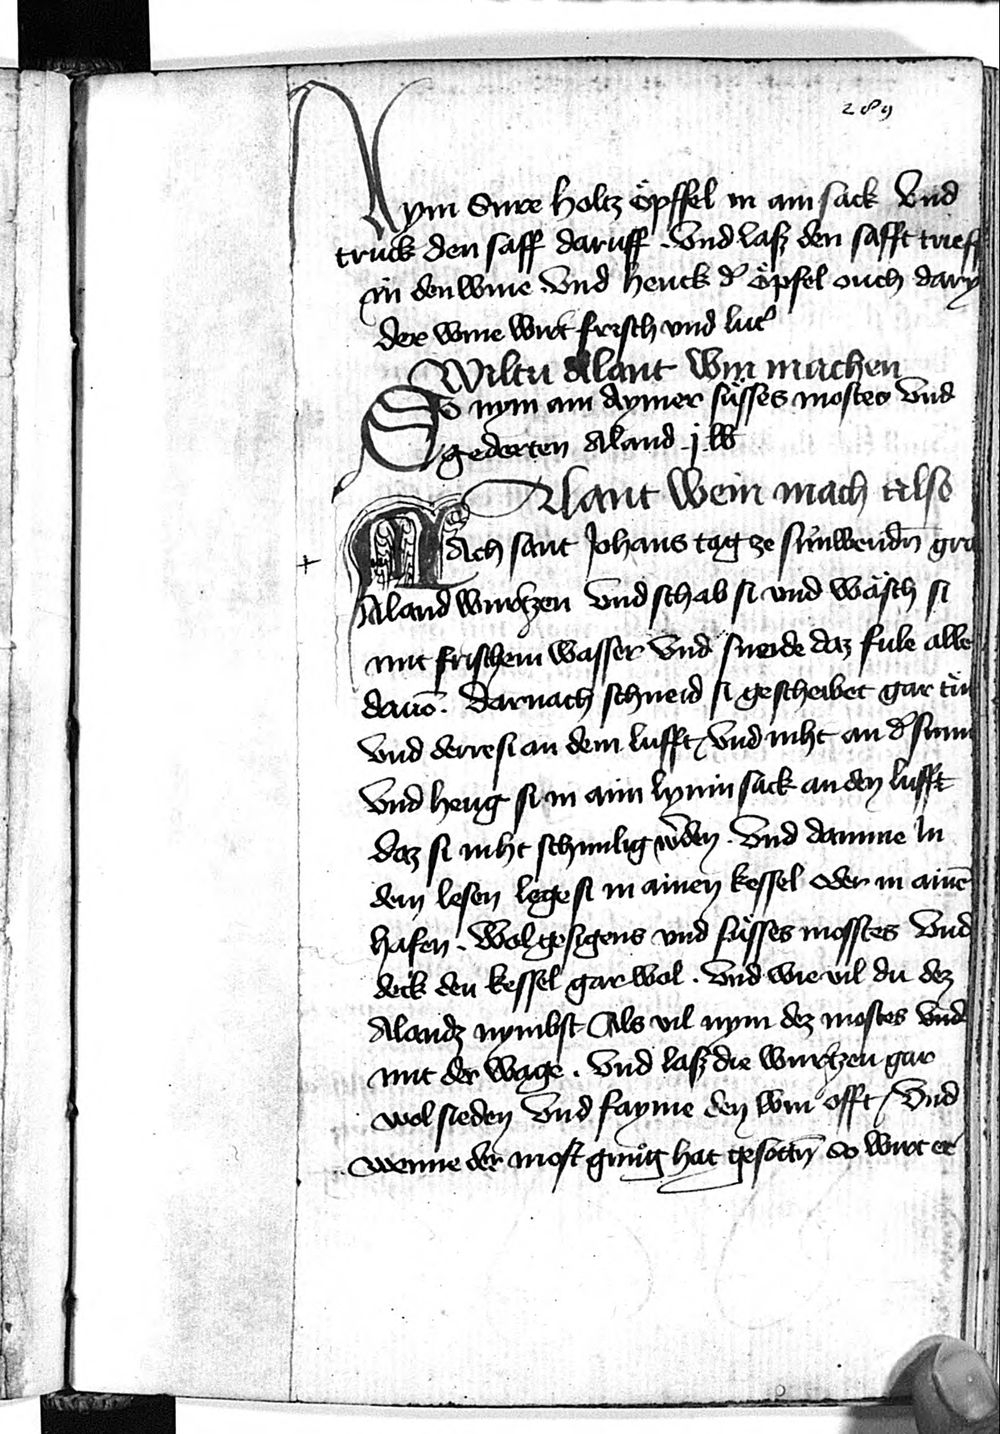 289
Nym Sure holtz öpffel in ain sack Vnd
truck den saff daruff . Vnd lasz den safft trieff
jn den wine Vnd henck d' öpfel ouch dary
der wine wirt frisch vnd lut'
Wiltu Alant Win machen
So nym ain Aymer süsses mostes Vnd
gederten Aland .j. lb
Alant Wein mach also
Nach sant Johans tag ze sunwendn̄ gra
Aland wurtzen Vnd schab si vnd wäsch si
mit frischem wasser Vnd sneide daz fule alle
dauō . Darnach schneid si gescheibet gar tün
Vnd derre si an dem lufft / Vnd niht an d' sunn
Vnd heng si in ainn lynin sack an den lufft
daz si niht schimlig w'den . Vnd danne In
dem lesen lege si in ainen kessel oder in ainē
hafen . Wol gesigens vnd süsses mosstes Vnd
deck den kessel gar wol . Vnd wie vil du dez
Alandz nymbst Als vil nym dez mostes Vnd
mit der Wage . Vnd lasz die wurtzen gar
wol sieden Vnd fayme den win offt / Vnd
wenne der most gnug hat gesottn̄ So wirt er